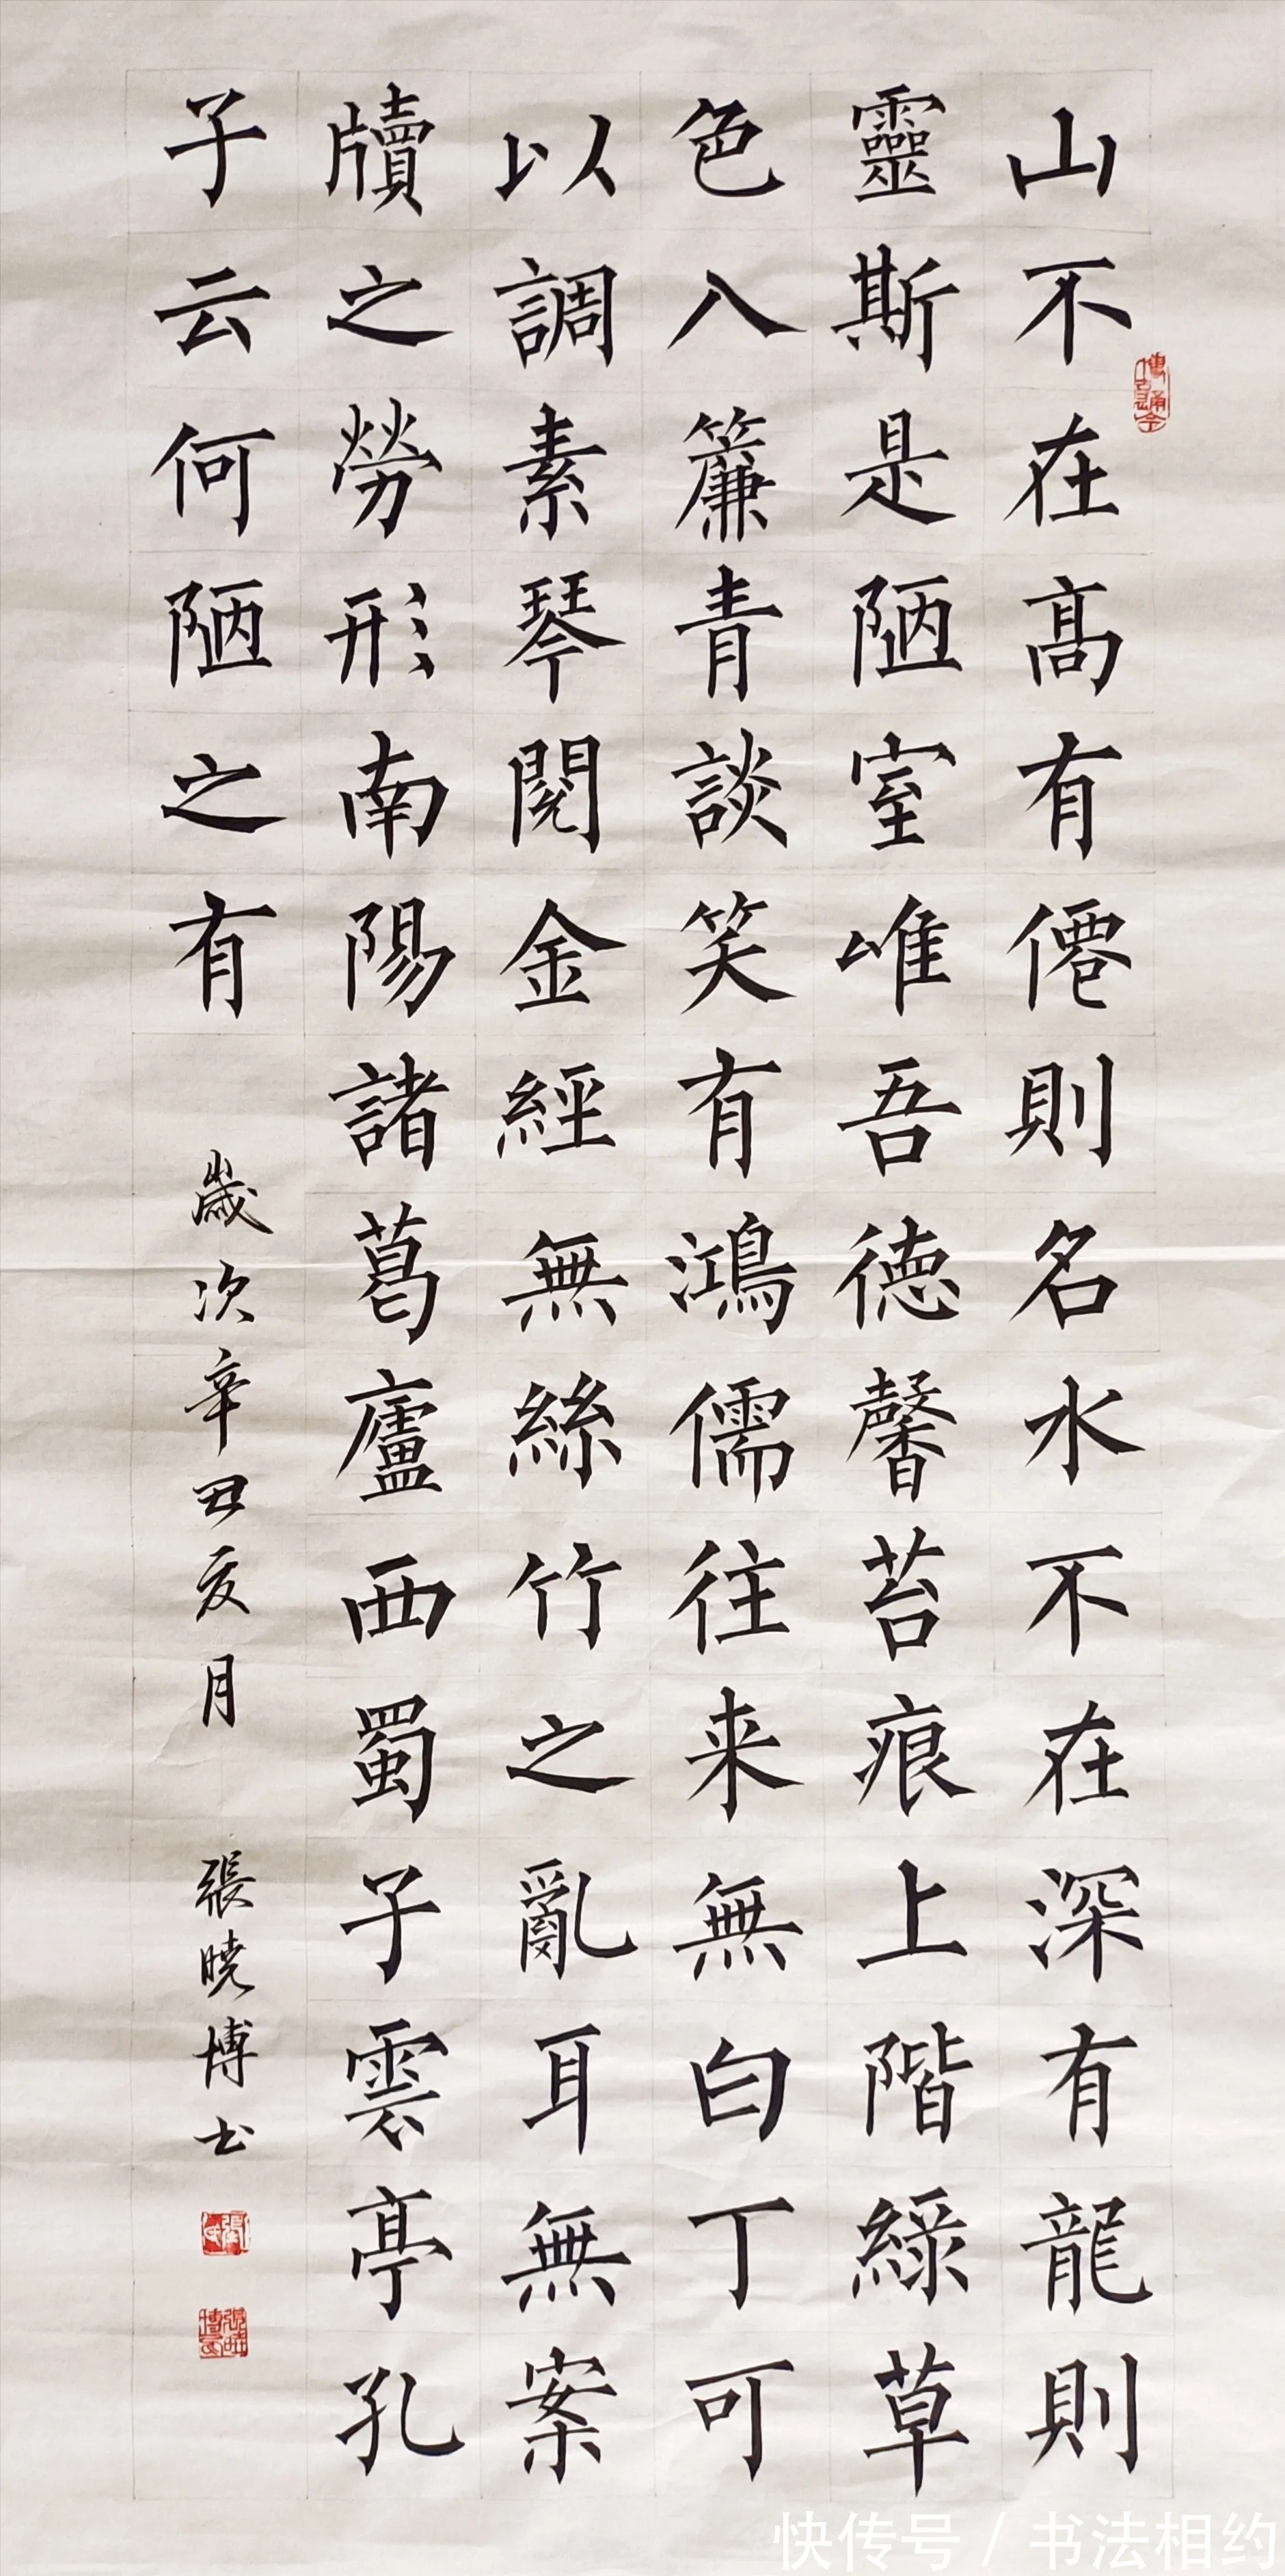 山不在髙有僊則名水不在深有龍則
靈斯是陋室唯吾徳馨苔痕上階綠草
色入簾青談笑有鴻儒往来無白丁可
以調素琴閱金經無絲竹之亂耳無案
牘之勞形南陽諸葛廬西蜀子雲亭孔
子云何陋之有
歲次辛丑夏月 張曉博书
快传号 / 书法相约